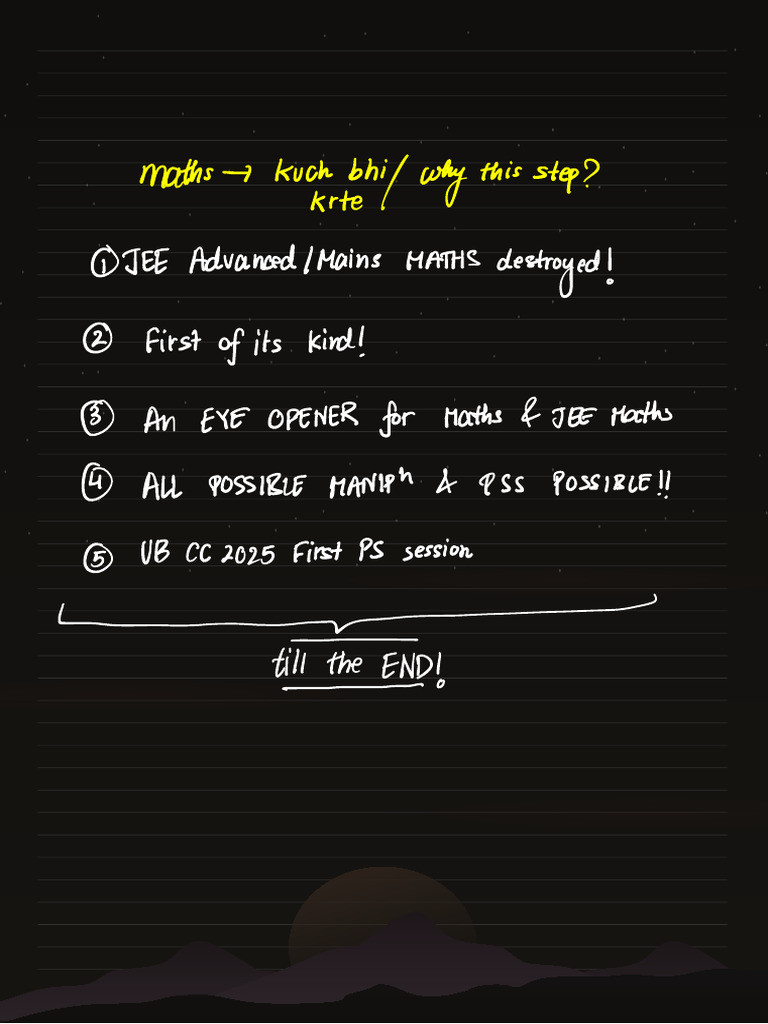 Maths → kuch bhi / why this step?
krte !
① JEE Advanced/Mains MATHS destroyed!
② First of its kind!
③ An EYE OPENER for Maths & JEE Maths
④ ALL POSSIBLE MANIPⁿ & PSS POSSIBLE!!
⑤ UB CC 2025 First PS session
till the END!